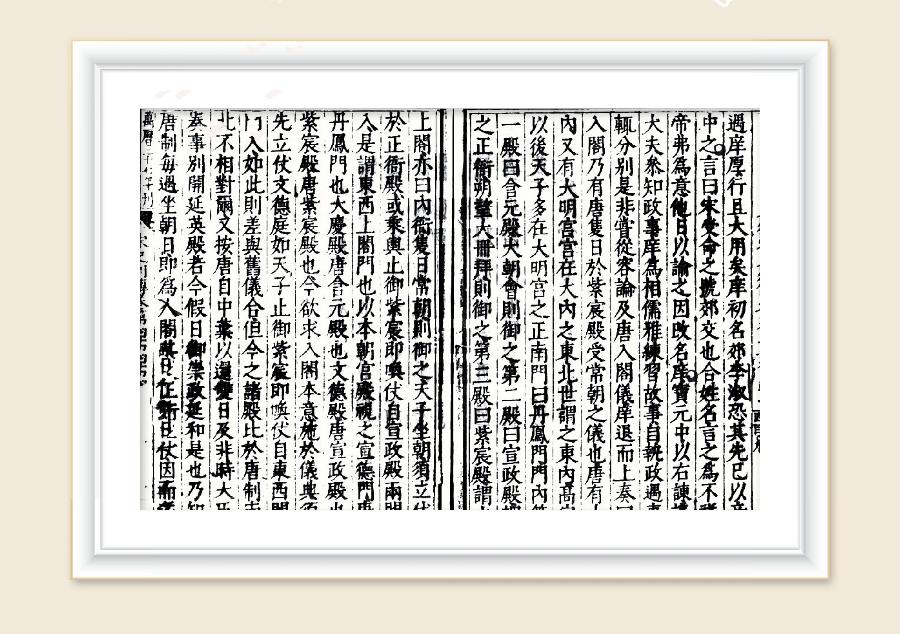 遇庠厚行且大用矣庠初名郊李淑恐其先已以
中之言曰宋受命之號郊交也合姓名言之爲不
帝弗爲意他日以諭之因改名庠寶元中以右諫
大夫參知政事庠爲相儒雅練習故事自執政遇事
輒分别是非嘗從容論及唐入閤儀庠退而上奏曰
入閤乃有唐隻日於紫宸殿受常朝之儀也唐有
內又有大明宮宮在大內之東北世謂之東內高宗
以後天子多在大明宮宮之正南門曰丹鳳門門內
一殿曰含元殿大朝會則御之第二殿曰宣政殿
之正衙朔望大冊拜則御之第三殿曰紫宸殿謂
上閤亦曰內衙隻日常朝則御之天子坐朝須立仗
於正衙殿或乘輿止御紫宸即喚仗自宣政殿兩門
入是謂東西上閤門也以本朝宮殿視之宣德門唐
丹鳳門也大慶殿唐含元殿也文德殿唐宣政殿也
紫宸殿唐紫宸殿也今欲求入閤本意施於儀典須
先立仗文德庭如天子止御紫宸即喚仗自東西閤
門入如此則差與舊儀合但今之諸殿比於唐制南
北不相對爾又按唐自中葉以還雙日及非時大臣
奏事别開延英殿若今假日御崇政延和是也乃知
唐制每遇坐朝日即爲入閤其後正衙立仗因而
萬曆